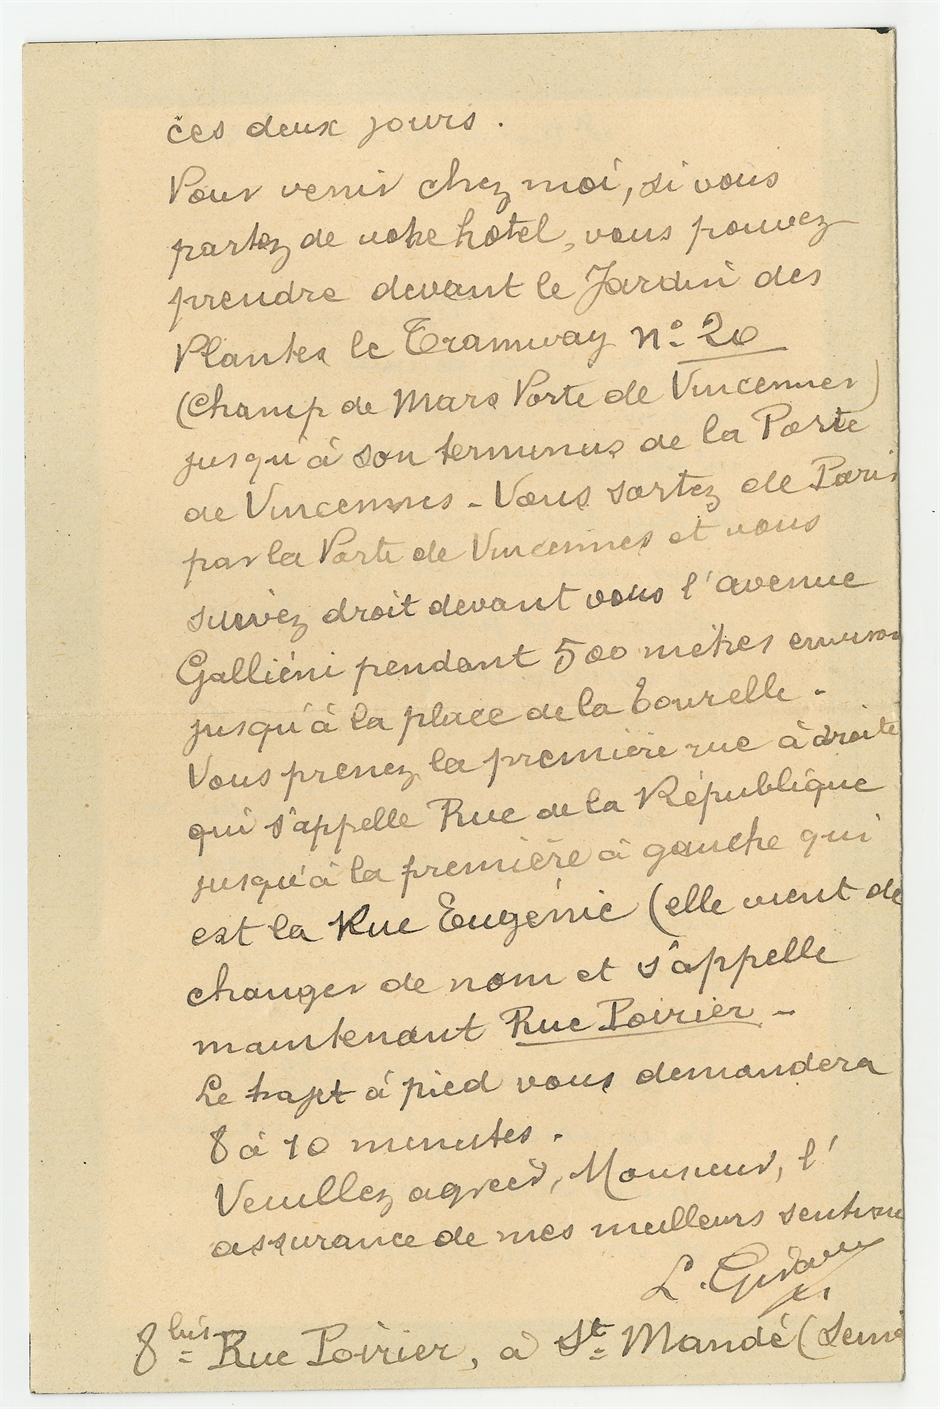 ces deux jours.
Pour venir chez moi, si vous
partez de votre hôtel, vous pouvez
prendre devant le Jardin des
Plantes le Tramway n° 20
(Champ de Mars Porte de Vincennes)
jusqu'à son terminus de la Porte
de Vincennes - Vous sortez de Paris
par la Porte de Vincennes et vous
suivez droit devant vous l'avenue
Galliéni pendant 500 mètres environ
jusqu'à la place de la Tourelle -
Vous prenez la première rue à droite
qui s'appelle Rue de la République
jusqu'à la première à gauche qui
est la Rue Eugénie (elle vient de
changer de nom et s'appelle
maintenant Rue Poirier -
Le trajet à pied vous demandera
8 à 10 minutes.
Veuillez agréer, Monsieur, l'
assurance de mes meilleurs sentim
L.
8 bis Rue Poirier, à St Mandé (Seine